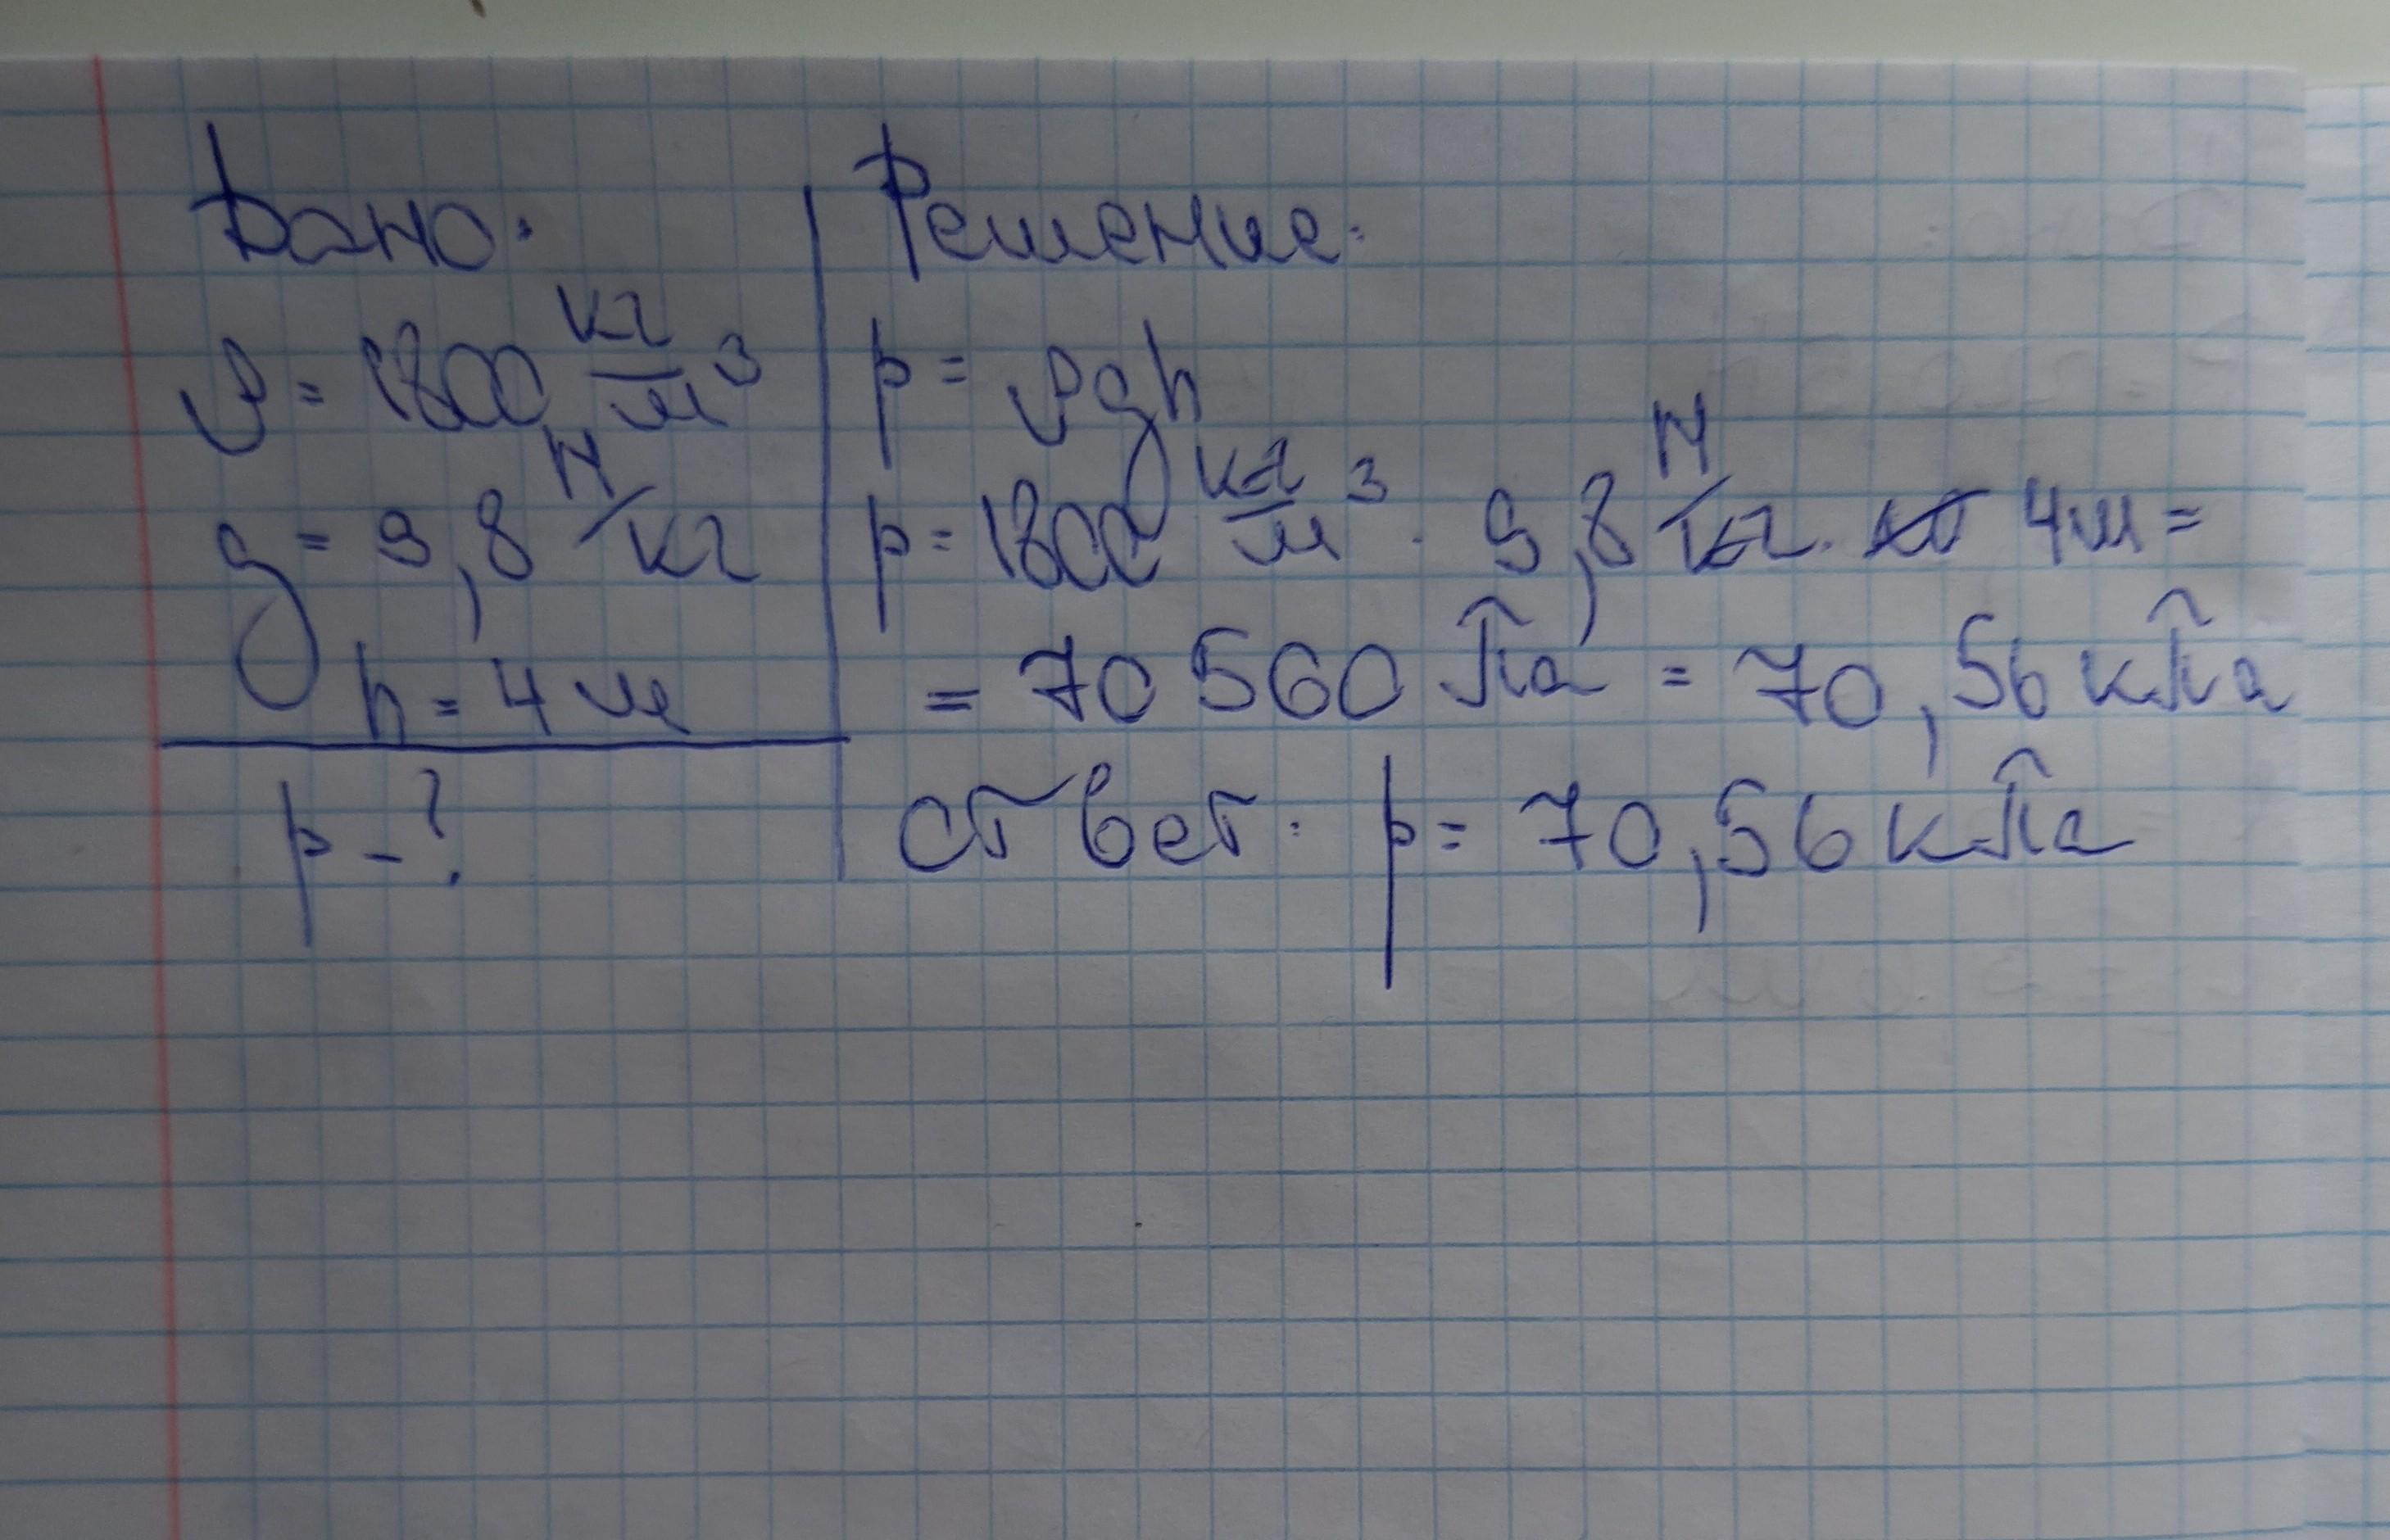 Дано:
ρ = 1800 кг/м³
g = 9,8 Н/кг
h = 4 м
p - ?
Решение:
p = ρgh
p = 1800 кг/м³ · 9,8 Н/кг · 4м =
= 70 560 Па = 70,56 кПа
ответ: p = 70,56 кПа